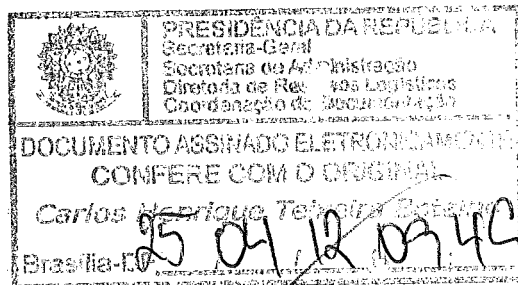 PRESIDÊNCIA DA REPÚBLICA
Secretaria-Geral
Secretaria de Administração
Diretoria de Recursos Logísticos
Coordenação de Documentação
DOCUMENTO ASSINADO ELETRONICAMENTE
CONFERE COM O ORIGINAL
Carlos Henrique Teixeira
Brasília-DF 25 04 12